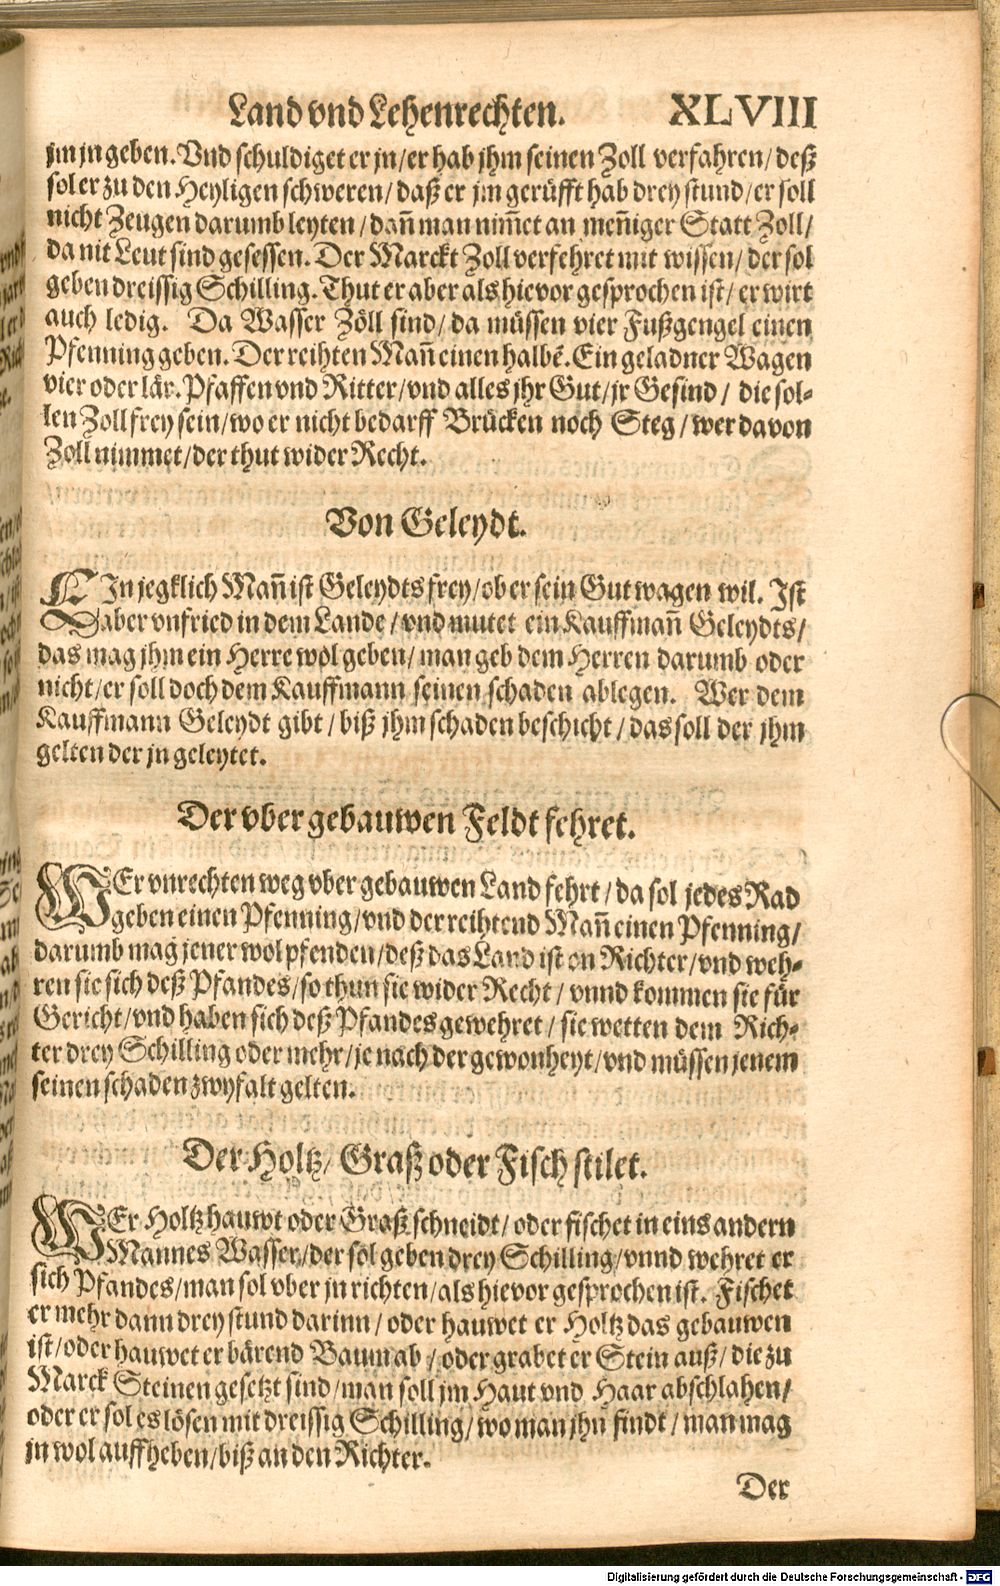 Land vnd Lehenrechten. XLVIII
jm jn geben. Vnd schuldiget er jn/er hab jhm seinen Zoll verfahren/deß
sol er zu den Heyligen schweren/daß er jm gerüfft hab drey stund/er soll
nicht Zeugen darumb leyten/dañ man nim̃et an meñiger Statt Zoll/
da nit Leut sind gesessen. Der Marckt Zoll verfehret mit wissen/der sol
geben dreissig Schilling. Thut er aber als hievor gesprochen ist/er wirt
auch ledig. Da Wasser Zöll sind/da müssen vier Fußgengel einen
Pfenning geben. Der reihten Mañ einen halbẽ. Ein geladner Wagen
vier oder lär. Pfaffen vnd Ritter/vnd alles jhr Gut/jr Gesind/ die sol-
len Zollfrey sein/wo er nicht bedarff Brücken noch Steg/wer davon
Zoll nimmet/der thut wider Recht.
Von Geleydt.
EIn jegklich Mañ ist Geleydts frey/ob er sein Gut wagen wil. Ist
aber vnfried in dem Lande/vnd mutet ein Kauffmañ Geleydts/
das mag jhm ein Herre wol geben/man geb dem Herren darumb oder
nicht/er soll doch dem Kauffmann seinen schaden ablegen. Wer dem
Kauffmann Geleydt gibt/biß jhm schaden beschicht/das soll der jhm
gelten der jn geleytet.
Der vber gebauwen Feldt fehret.
WEr vnrechten weg vber gebauwen Land fehrt/da sol jedes Rad
geben einen Pfenning/vnd der reihtend Mañ einen Pfenning/
darumb mag jener wol pfenden/deß das Land ist on Richter/vnd weh-
ren sie sich deß Pfandes/so thun sie wider Recht/vnnd kommen sie für
Gericht/vnd haben sich deß Pfandes gewehret/sie wetten dem Rich-
ter drey Schilling oder mehr/je nach der gewonheyt/vnd müssen jenem
seinen schaden zwyfalt gelten.
Der Holtz/Graß oder Fisch stilet.
WEr Holtz hauwt oder Graß schneidt/oder fischet in eins andern
Mannes Wasser/der sol geben drey Schilling/vnnd wehret er
sich Pfandes/man sol vber jn richten/als hievor gesprochen ist. Fischet
er mehr dann drey stund darinn/oder hauwet er Holtz das gebauwen
ist/oder hauwet er bärend Baum ab/oder grabet er Stein auß/die zu
Marck Steinen gesetzt sind/man soll jm Haut vnd Haar abschlahen/
oder er sol es lösen mit dreissig Schilling/wo man jhn findt/man mag
jn wol auffheben/biß an den Richter.
Der
Digitalisierung gefördert durch die Deutsche Forschungsgemeinschaft - DFG